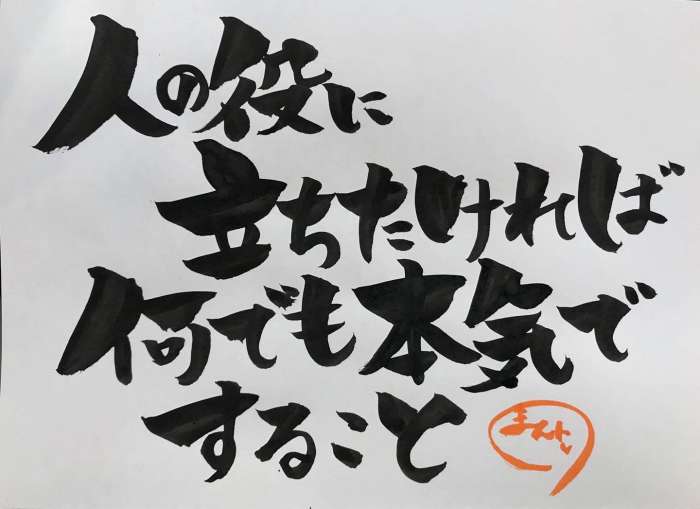 人の役に
立ちたければ
何でも本気で
すること